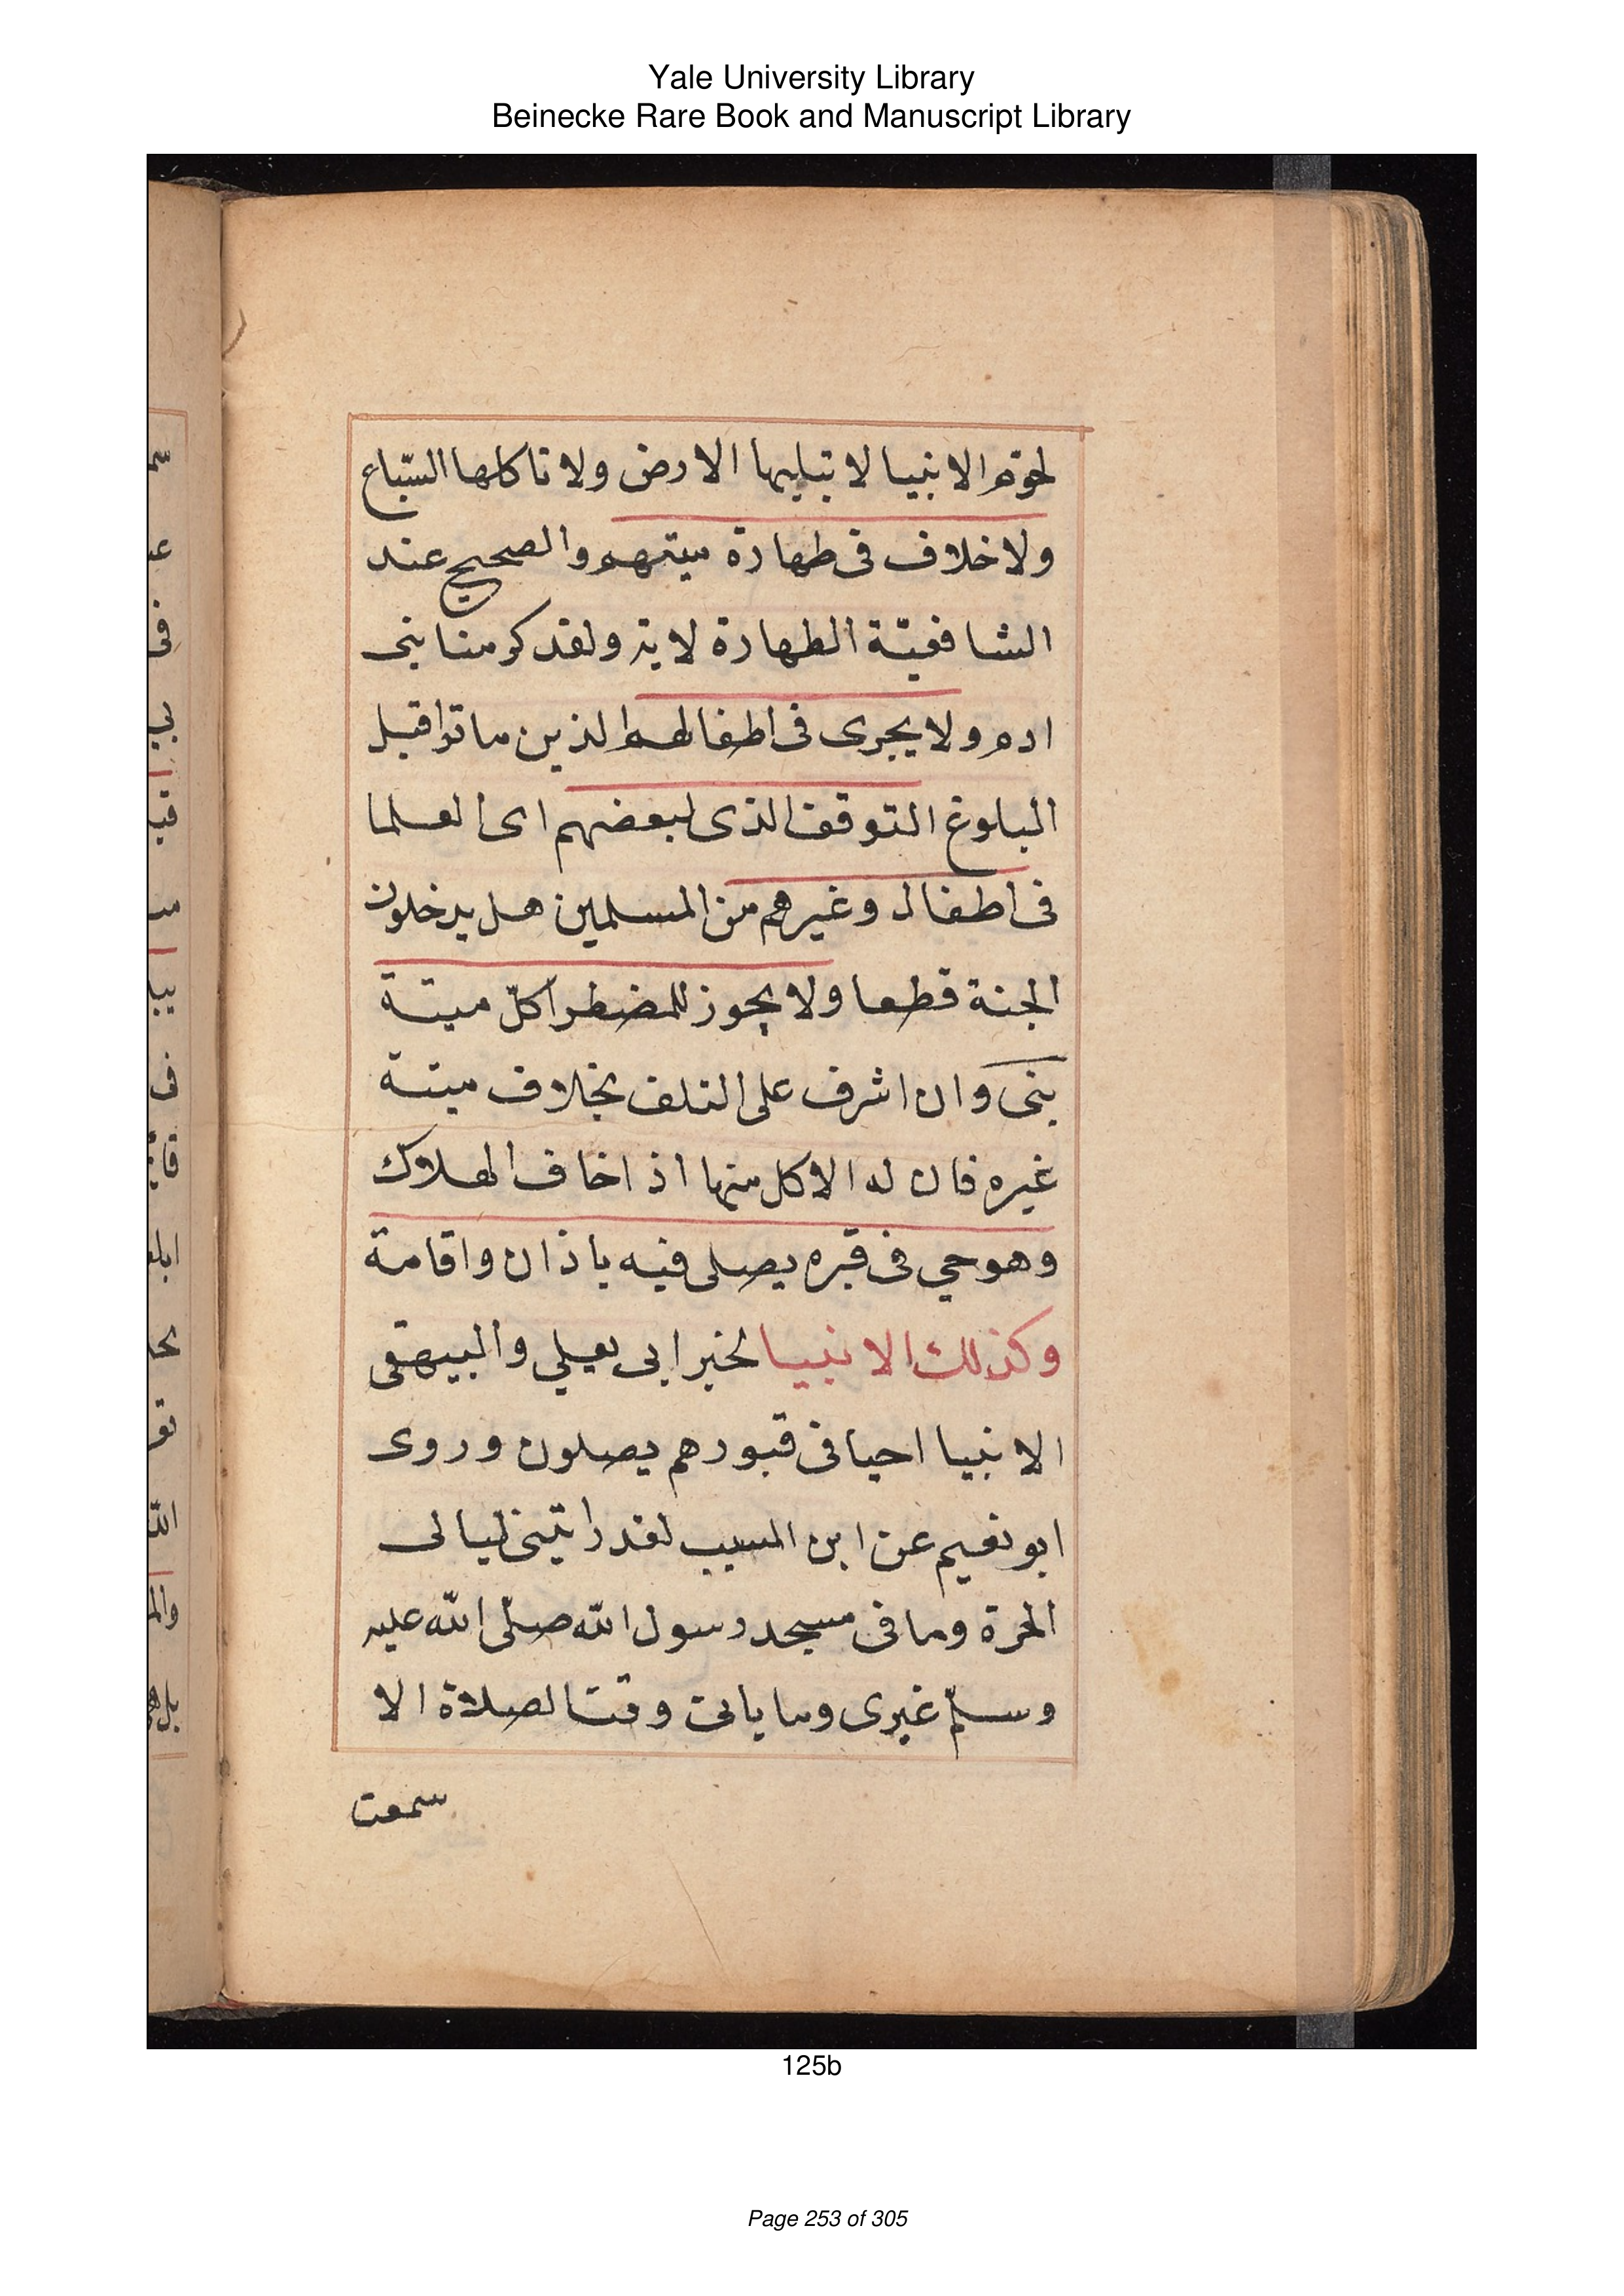 Yale University Library
Beinecke Rare Book and Manuscript Library
لحوم الانبيا لا تبليها الارض ولا تاكلها السّباع
ولا خلاف فى طهارة ميتهم والصحيح عند
الشافعيّة الطهارة لاية ولقد كرمنا بنى
ادم ولا يجرى فى اطفالهم الذين ماتوا قبل
البلوغ التوقف الذى لبعضهم اى العلما
فى اطفال وغيرهم من المسلمين هل يدخلون
الجنة قطعا ولا يجوز للمضطر اكل ميتة
نبى وان اشرف على التلف بخلاف ميتة
غيره فان له الاكل منها اذا خاف الهلاك
وهو حي فى قبره يصلى فيه باذان واقامة
وكذلك الانبيا لخبر ابى يعلي والبيهقى
الانبيا احيا فى قبورهم يصلون وروى
ابو نعيم عن ابن المسيب لقد رايتنى ليالى
الحرة وما فى مسجد رسول الله صلّى الله عليه
وسلّم غيرى وما ياتى وقت الصلاة الا
سمعت
125b
Page 253 of 305